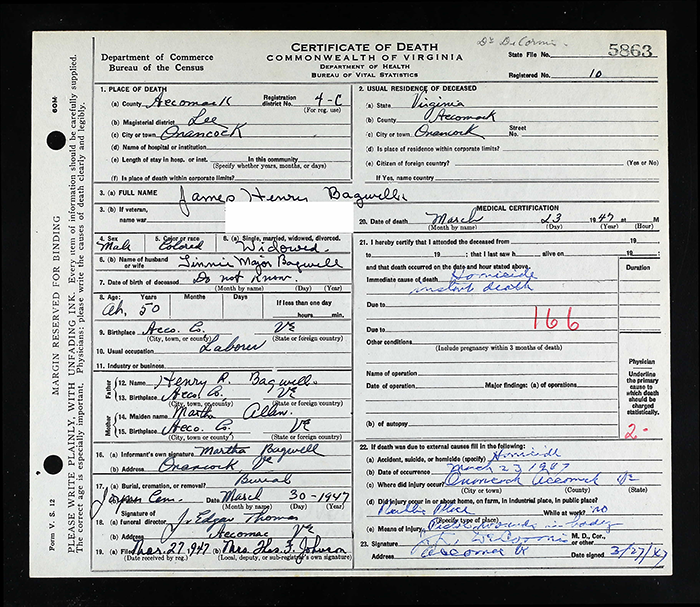 Dr. DeCormis.
CERTIFICATE OF DEATH
COMMONWEALTH OF VIRGINIA
DEPARTMENT OF HEALTH
BUREAU OF VITAL STATISTICS
Department of Commerce
Bureau of the Census
State File No. 5863
Registered No. 10
1. PLACE OF DEATH
(a) County Accomack Registration district No. 4-C (For reg. use)
(b) Magisterial district Lee
(c) City or town Onancock
(d) Name of hospital or institution
(e) Length of stay in hosp. or inst. In this community
(Specify whether years, months, or days)
(f) Is place of death within corporate limits?
2. USUAL RESIDENCE OF DECEASED
(a) State Virginia
(b) County Accomack
(c) City or town Onancock Street No.
(d) Is place of residence within corporate limits?
(e) Citizen of foreign country? (Yes or No)
If Yes, name country
3. (a) FULL NAME James Henry Bagwell
3. (b) If veteran, name war
4. Sex Male 5. Color or race Colored 6. (a) Single, married, widowed, divorced. Widowed.
6. (b) Name of husband or wife Major Bagwell
7. Date of birth of deceased Do not know
(Month by name) (Day) (Year)
8. Age: Years Months Days If less than one day
Ab. 50 hours min.
9. Birthplace Acco. Co. Va
(City, town, or county) (State or foreign country)
10. Usual occupation Laborer
11. Industry or business
Father
12. Name Henry R. Bagwell
13. Birthplace Acco. Co. Va
(City, town, or county) (State or foreign country)
Mother
14. Maiden name Martha Allen
15. Birthplace Acco. Co. Va
(City, town, or county) (State or foreign country)
16. (a) Informant's own signature Martha Bagwell
(b) Address Onancock, Va
17. (a) Burial, cremation, or removal? Burial
Cem. March 30-1947
(Month by name) (Day) (Year)
18. Signature of funeral director J. Edgar Thomas
Address Accomac Va
19. (a) Filed Mar. 27, 947 (b) Mrs. Thos. F. Johnson
(Date received by reg.) (Local, deputy, or sub-registrar's own signature)
MEDICAL CERTIFICATION
20. Date of death March 23 1947 at M
(Month by name) (Day) (Year) (Hour)
21. I hereby certify that I attended the deceased from 19
to 19 ; that I last saw h alive on 19
and that death occurred on the date and hour stated above.
Immediate cause of death Homicide
instant death
Duration
Due to
Due to
166
Other conditions
(Include pregnancy within 3 months of death)
Name of operation
Date of operation Major findings: (a) of operations
(b) of autopsy
Physician
Underline the primary cause to which death should be charged statistically.
2-
22. If death was due to external causes fill in the following:
(a) Accident, suicide, or homicide (specify) Homicide
(b) Date of occurrence March 23 1947
(c) Where did injury occur? Onancock Accomack Va
(City or town) (County) (State)
(d) Did injury occur in or about home, on farm, in industrial place, in public place?
Public Place While at work? no
(Specify type of place)
(e) Means of injury wounds in body
23. Signature DeCormis M. D., Cor., or other
Address Accomac Va Date signed 3/27/47
Form V. S. 12
60M
MARGIN RESERVED FOR BINDING
PLEASE WRITE PLAINLY, WITH UNFADING INK. Every item of information should be carefully supplied.
The correct age is especially important. Physicians: please write the causes of death clearly and legibly.